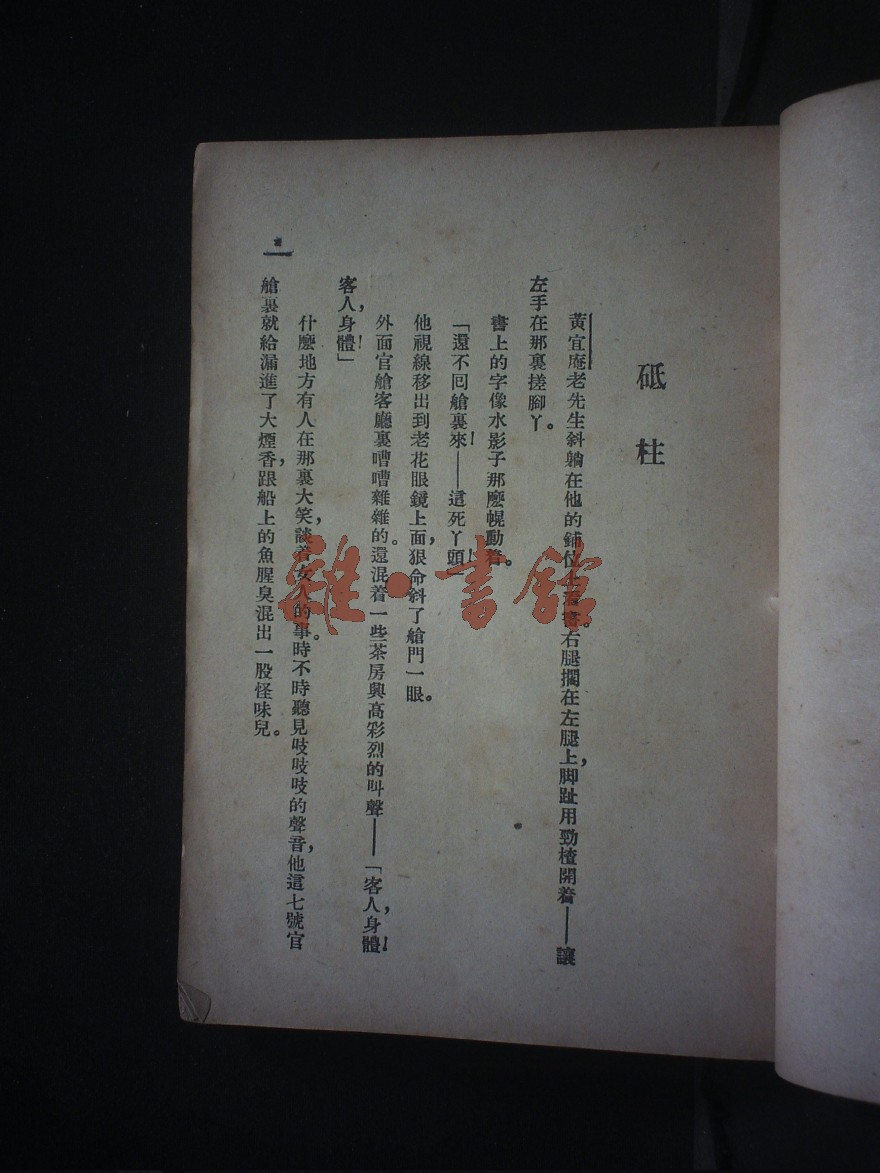 砥柱
黃宜庵老先生斜躺在他的鋪位上看書。右腿擱在左腿上，脚趾用勁楂開着——讓
左手在那裏搓腳丫。
書上的字像水影子那麽幌動着。
「還不囘艙裏來！——這死丫頭！」
他視線移出到老花眼鏡上面，狠命斜了艙門一眼。
外面官艙客廳裏嘈嘈雜雜的。還混着一些茶房興高彩烈的叫聲——「客人，身體！
客人，身體！」
什麽地方有人在那裏大笑，談着女人的事。時不時聽見吱吱吱的聲音，他這七號官
艙裏就給漏進了大煙香，跟船上的魚腥臭混出一股怪味兒。
一
雜·書館